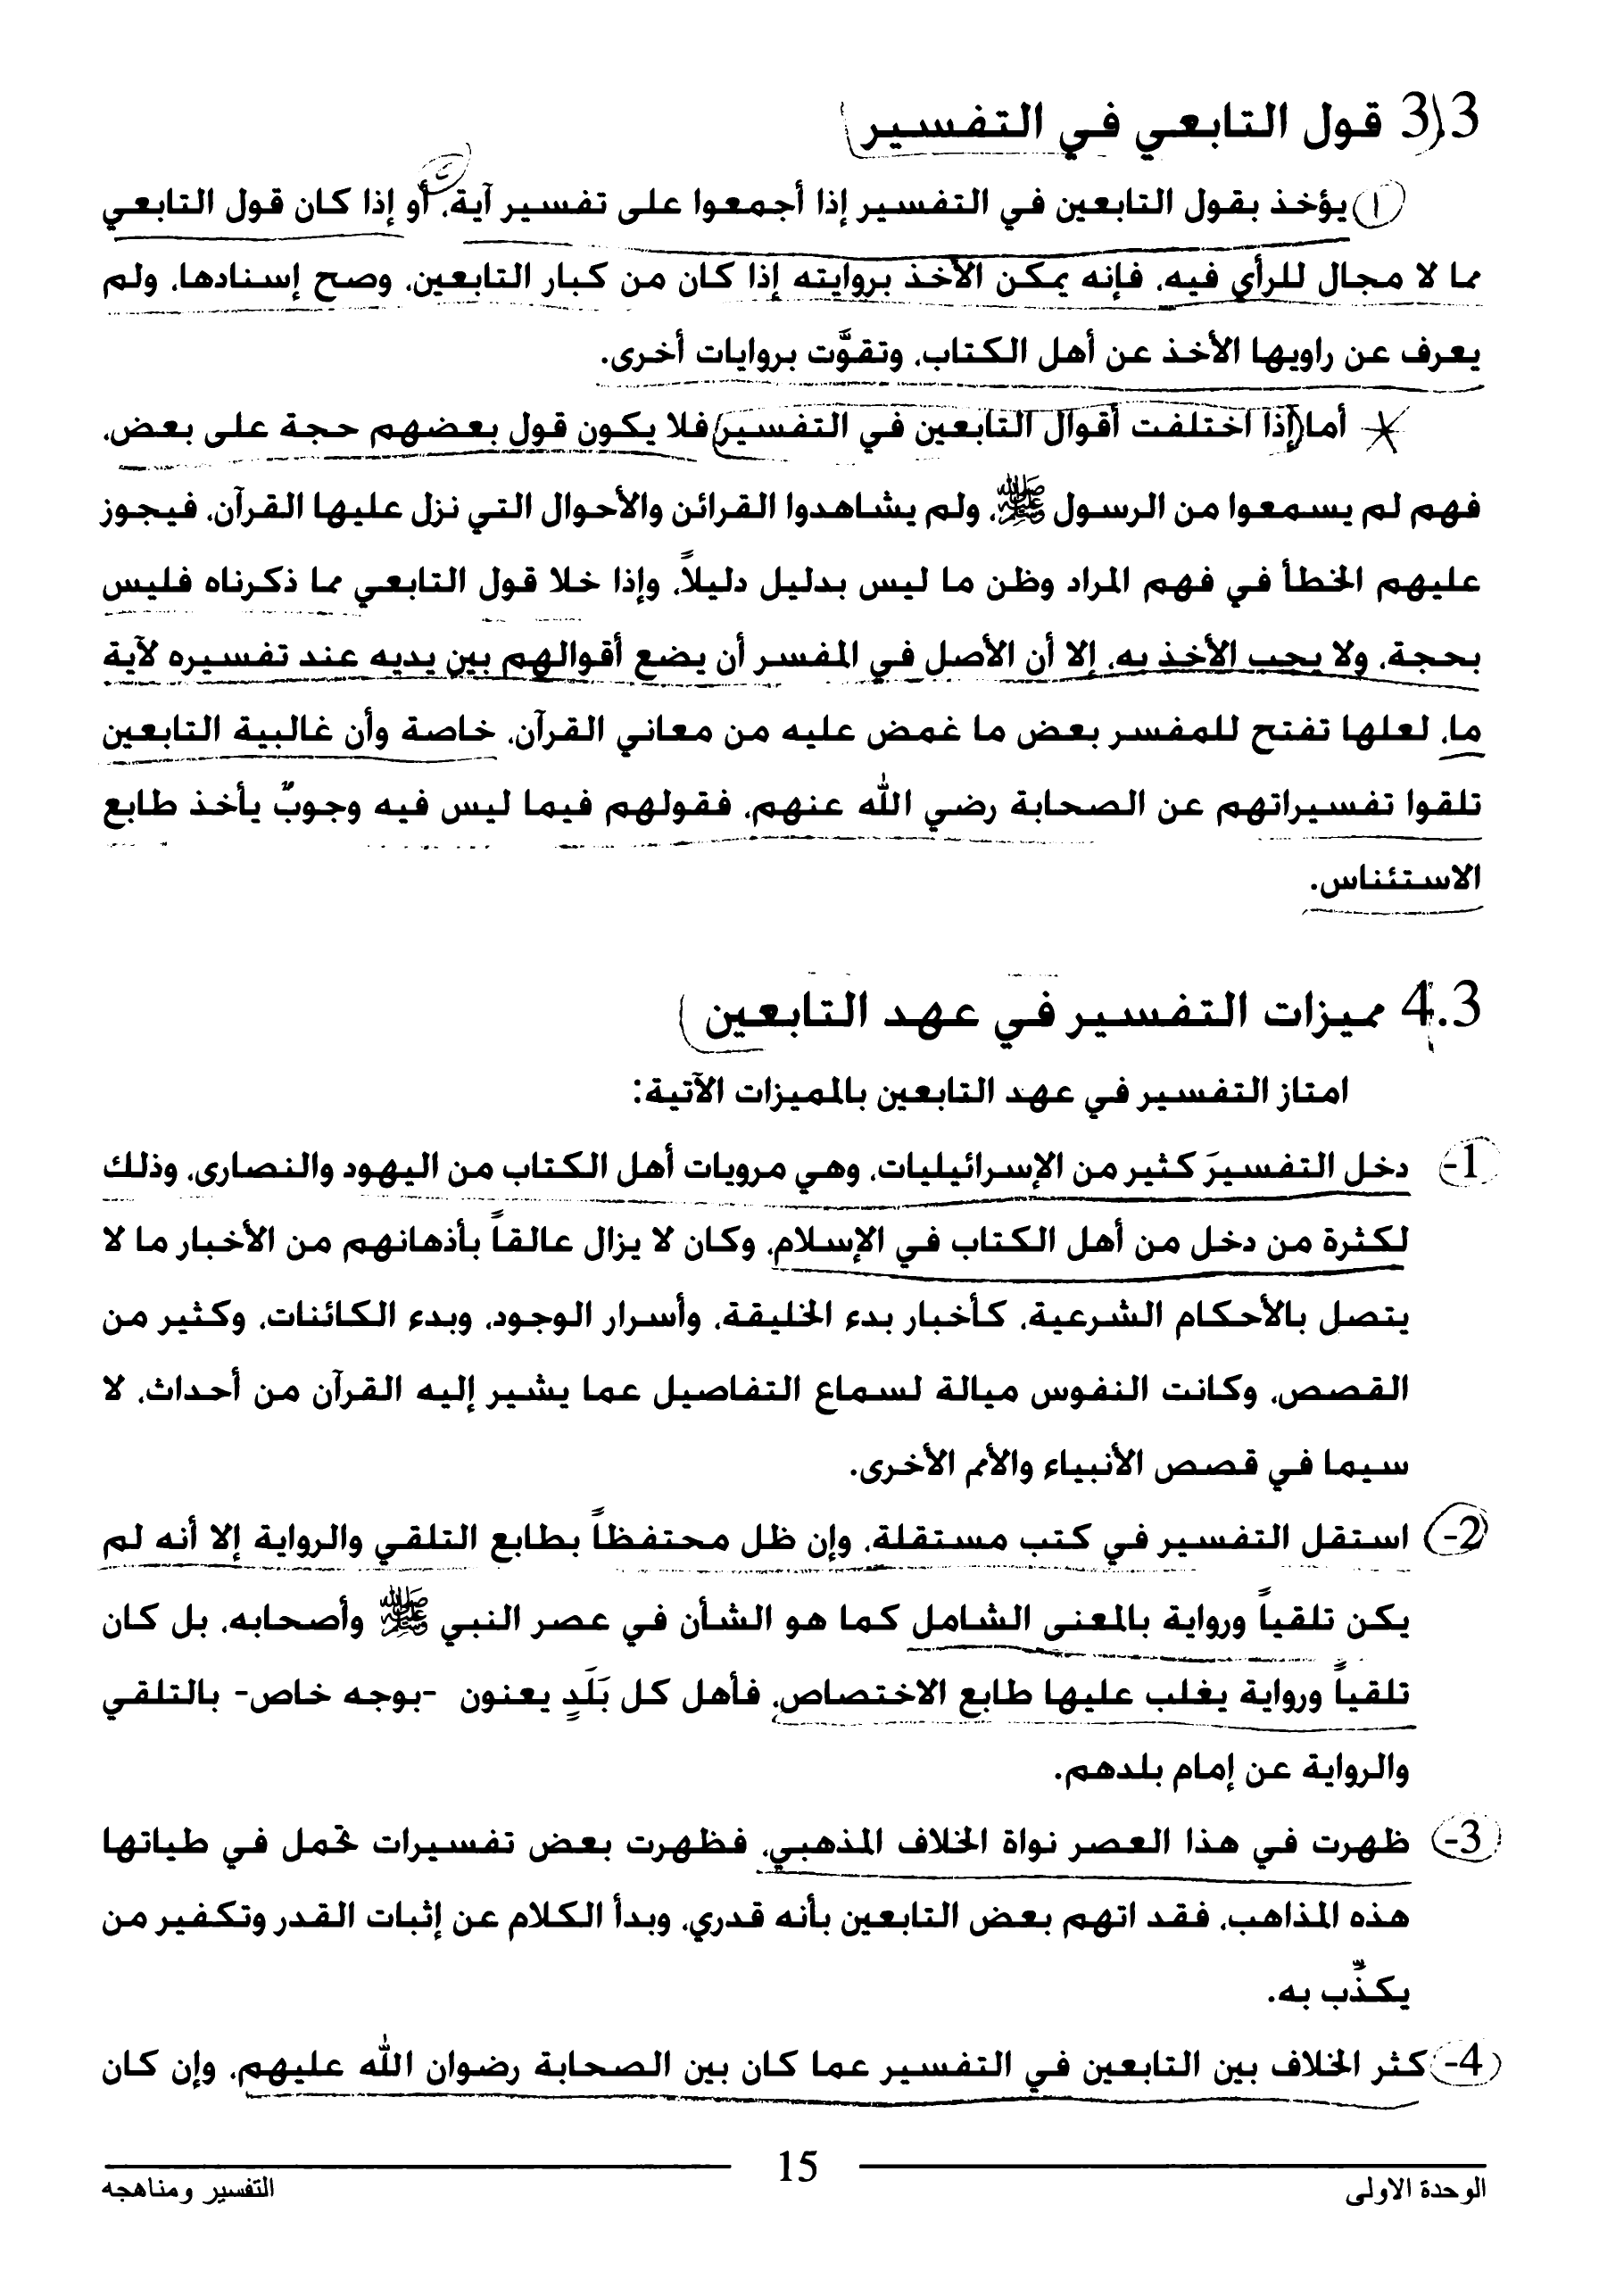 3.3 قول التابعي في التفسير
① يؤخذ بقول التابعين في التفسير إذا أجمعوا على تفسير آية، أو إذا كان قول التابعي
مما لا مجال للرأي فيه، فإنه يمكن الأخذ بروايته إذا كان من كبار التابعين، وصح إسنادها، ولم
يعرف عن راويها الأخذ عن أهل الكتاب، وتقوَّت بروايات أخرى.
* أما (إذا اختلفت أقوال التابعين في التفسير) فلا يكون قول بعضهم حجة على بعض،
فهم لم يسمعوا من الرسول ﷺ، ولم يشاهدوا القرائن والأحوال التي نزل عليها القرآن، فيجوز
عليهم الخطأ في فهم المراد وظن ما ليس بدليل دليلاً، وإذا خلا قول التابعي مما ذكرناه فليس
بحجة، ولا يجب الأخذ به، إلا أن الأصل في المفسر أن يضع أقوالهم بين يديه عند تفسيره لآية
ما، لعلها تفتح للمفسر بعض ما غمض عليه من معاني القرآن، خاصة وأن غالبية التابعين
تلقوا تفسيراتهم عن الصحابة رضي الله عنهم، فقولهم فيما ليس فيه وجوبٌ يأخذ طابع
الاستئناس.
4.3 مميزات التفسير في عهد التابعين
امتاز التفسير في عهد التابعين بالمميزات الآتية:
1- دخل التفسيرَ كثير من الإسرائيليات، وهي مرويات أهل الكتاب من اليهود والنصارى، وذلك
لكثرة من دخل من أهل الكتاب في الإسلام، وكان لا يزال عالقاً بأذهانهم من الأخبار ما لا
يتصل بالأحكام الشرعية، كأخبار بدء الخليقة، وأسرار الوجود، وبدء الكائنات، وكثير من
القصص، وكانت النفوس ميالة لسماع التفاصيل عما يشير إليه القرآن من أحداث، لا
سيما في قصص الأنبياء والأمم الأخرى.
2- استقل التفسير في كتب مستقلة، وإن ظل محتفظاً بطابع التلقي والرواية إلا أنه لم
يكن تلقياً ورواية بالمعنى الشامل كما هو الشأن في عصر النبي ﷺ وأصحابه، بل كان
تلقياً ورواية يغلب عليها طابع الاختصاص، فأهل كل بَلَدٍ يعنون -بوجه خاص- بالتلقي
والرواية عن إمام بلدهم.
3- ظهرت في هذا العصر نواة الخلاف المذهبي، فظهرت بعض تفسيرات تحمل في طياتها
هذه المذاهب، فقد اتهم بعض التابعين بأنه قدري، وبدأ الكلام عن إثبات القدر وتكفير من
يكذّب به.
4- كثر الخلاف بين التابعين في التفسير عما كان بين الصحابة رضوان الله عليهم، وإن كان
15
الوحدة الاولى
التفسير ومناهجه